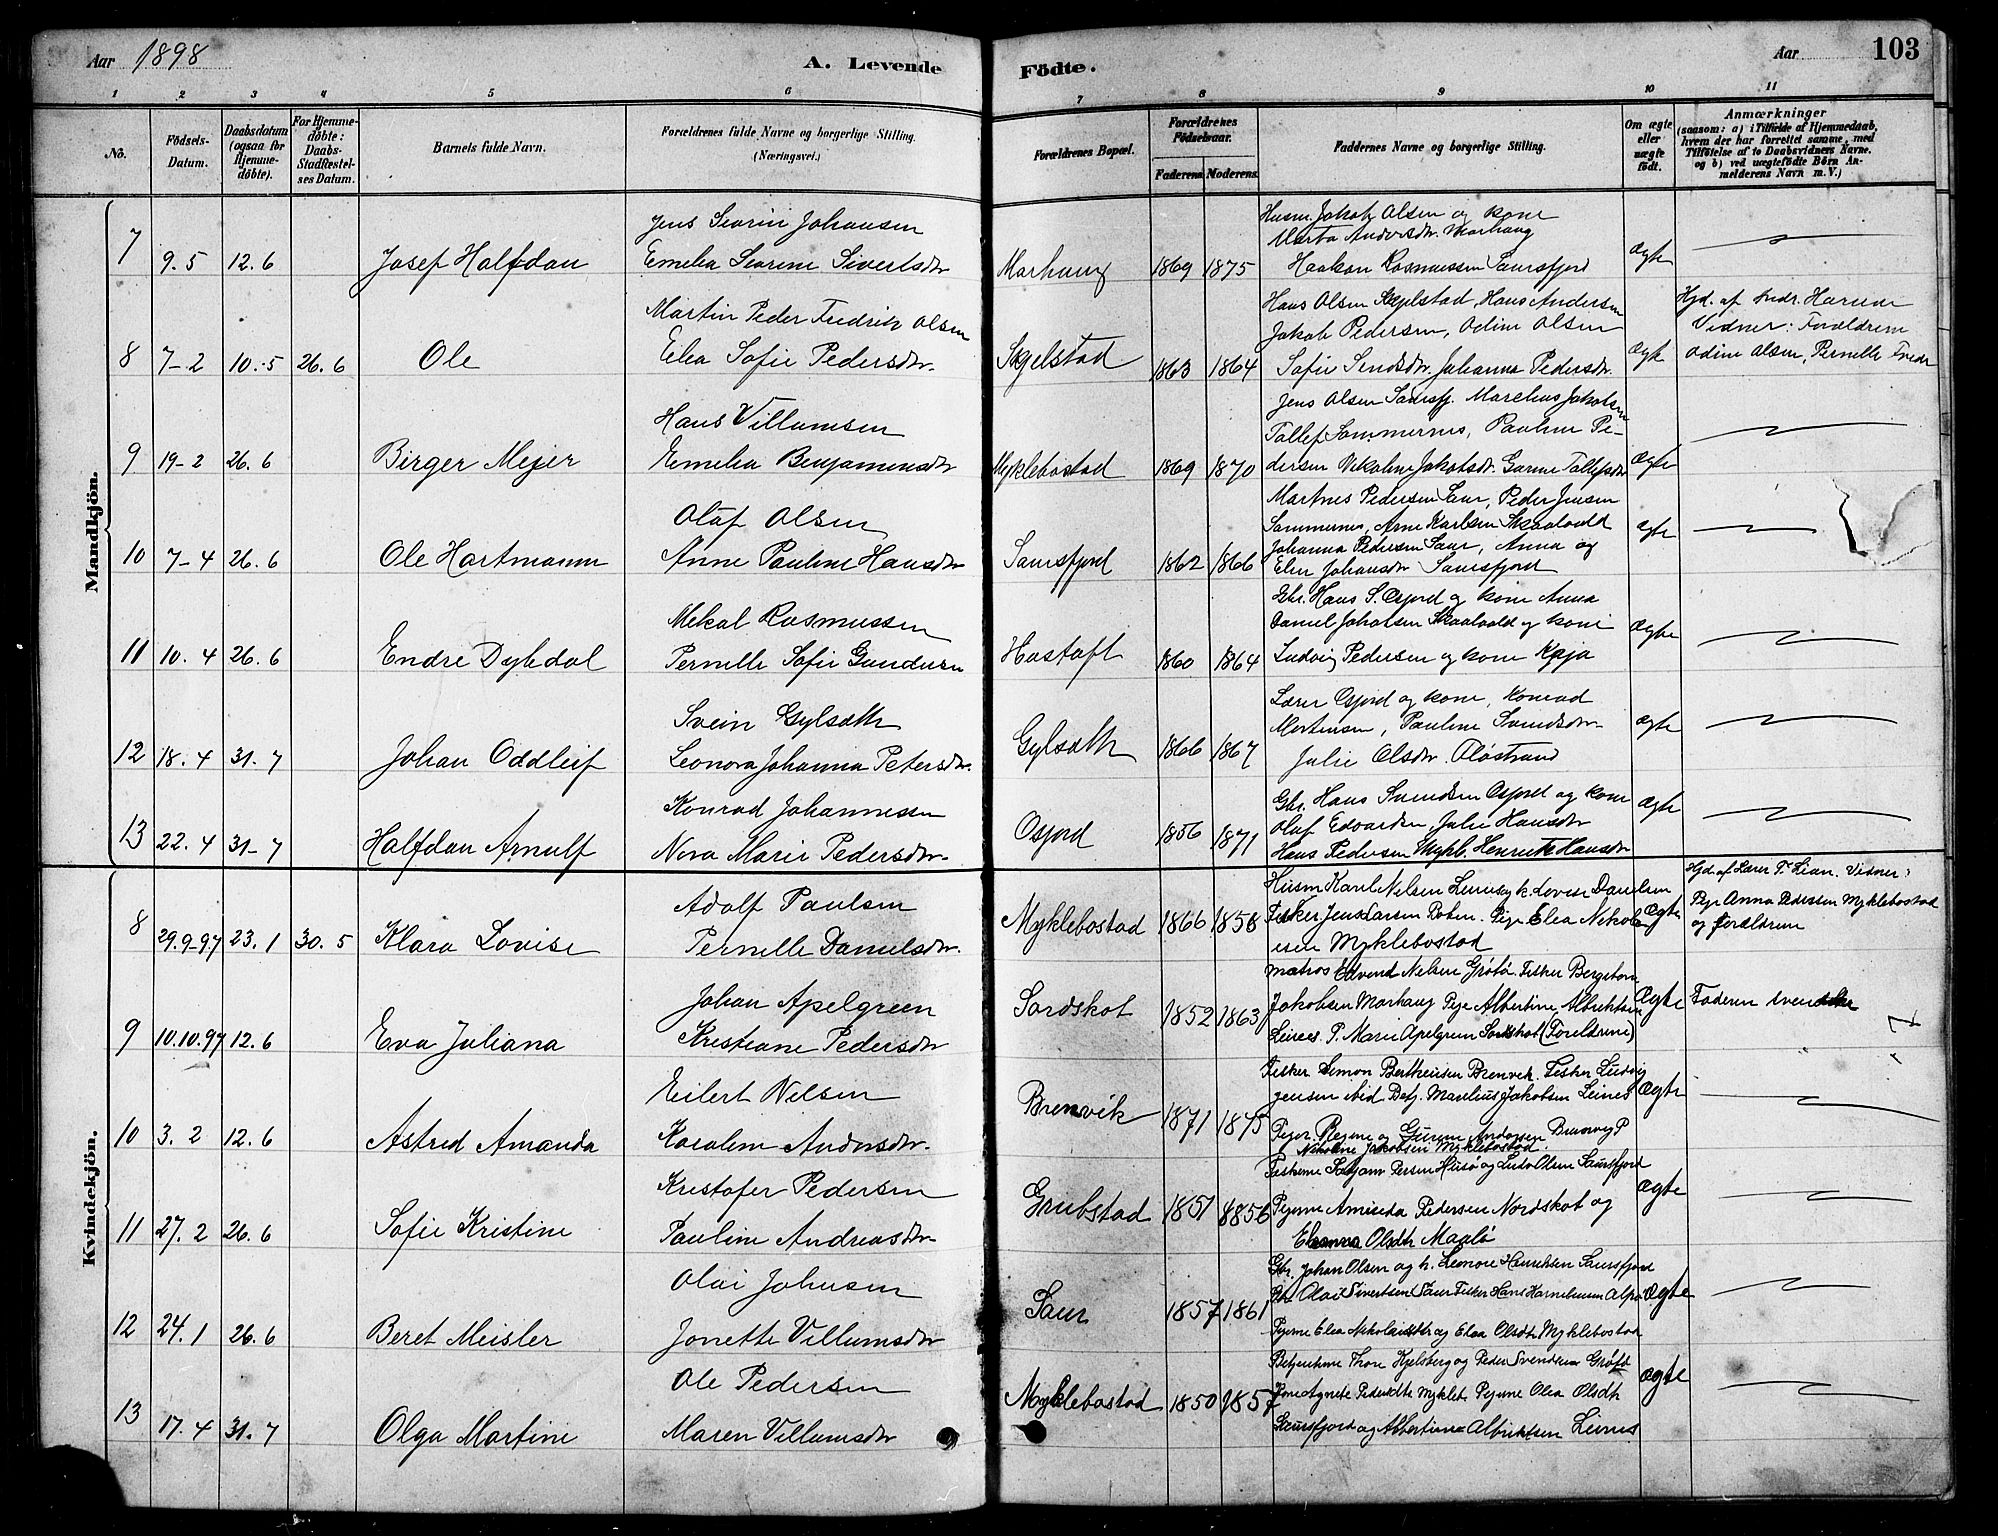 Aar 1898
A. Levende
Födte.
Aar
103
1 2 3 4 5 6 7 8 9 10 11
No.
Födsels-
Datum.
Daabsdatum
(ogsaa for
Hjemme-
döbte).
For Hjemme-
döbte:
Daabs-
Stadfæstel-
ses Datum.
Barnets fulde Navn.
Forældrenes fulde Navne og borgerlige Stilling.
(Næringsvei.)
Forældrenes Bopæl.
Forældrenes
Födselsaar.
Faderens. Moderens.
Faddernes Navne og borgerlige Stilling.
Om ægte
eller
uægte
födt.
Anmærkninger
(saasom: a) i Tilfælde af Hjemmedaab,
hvem der har forrettet samme, med
Tilföielse af to Daabsvidners Navne.
og b) ved uægtefödte Börn An-
melderens Navn m. V.)
Mandkjön.
7 9.5 12.6 Josef Halfdan
Jens Searin Johansen
Emelia Searine Sivertsdtr
Marhaug 1869 1875
Husm. Jakob Olsen og kone
Marta Andersdtr. Marhaug
Haakon Rasmussen Saursfjord
ægte
8 7-2 10.-5 26.6 Ole
Martin Peder Fredrik Olsen
Elea Sofie Pedersdtr.
Skjelstad 1863 1864
Hans Olsen Skjelstad, Hans Andersen
Jakob Pedersen, Odine Olsen
Sofie Sendsdtr. Johanna Pedersdtr.
ægte
Hjd. af Indr.
Vidner: Forældrene
Odine Olsen, Pernelle Fredr
9 19-2 26.6 Birger Mejer
Hans Villumsen
Emelia Benjaminsdtr
Myklebostad 1869 1870
Jens Olsen Saursfj. Marelius Jakobsen
Tollef Sommernes, Pauline Pe-
dersen Nikoline Jakobsdr. Gurine Tollefsdtr
ægte
10 7-4 26.6 Ole Hartmann
Olaf Olsen
Anne Pauline Hansdtr
Saursfjord 1862 1866
Martnes Pedersen Saur, Peder Jensen
Sommernes, Arne Karlsen Skaalvold
Johanna Pedersen Saur, Anna og
Elen Johansdtr Saursfjord
ægte
11 10.4 26.6 Endre Dybdal
Mekal Rasmussen
Pernelle Sofie Gundersen
Hastaft 1860 1864
Gbr. Hans S. Osfjord og kone Anna
Daniel Jakobsen Skaalvold og kone
Ludvig Pedersen og kone Kaja
ægte
12 18.4 31.7 Johan Oddleif
Svein Gylsæth
Leonora Johanna Petersdtr.
Gylsæth 1866 1867
Lærer Osfjord og kone, Konrad
Mortensen, Pauline Svendsdtr
Julie Olsdtr. Fløstrand
ægte
13 22.4 31-7 Halfdan Arnulf
Konrad Johannessen
Nora Marie Pedersdtr.
Osfjord 1856 1871
Gbr. Hans Svendsen Osfjord og kone
Olaf Edvardsen, Julie Hansdtr
Hans Pedersen Mykl. Henrikke Hansdtr
ægte
Kvindekjön.
8 29.9-97 23.1 30.5 Klara Lovise
Adolf Paulsen
Pernelle Danielsdtr.
Myklebostad 1866 1858
Husm Karl Nelsen Leines og k. Lovise Danielsen
Fisker Jens Larsen Roben. Pige Elea Nikola-
isen Myklebostad
ægte
Hjd. af Lærer T. Lian. Vidner:
Pige Anna Pedersen Myklebostad
og forældrene
9 10.10.97 12.6 Eva Juliana
Johan Apelgreen
Kristiane Pedersdtr
Sordskot 1852 1863
Matros Edvend Nelsen Grøtø. Fisker Bergeton
Jakobsen Marhaug Pige Albertine Albriktsen
Leines. P. Marie Apelgreen Sordskot (Foreldrene)
ægte
Faderen svenske
10 3.2 12.6 Astred Amanda
Eilert Nelsen
Karoline Andersdtr.
Brenvik 1871 1875
Fisker Simon Bertheusen Brenvik. Fisker Ludvig
Jensen ibid Do. Marelius Jakobsen Leines
Piger Regine og Gurine Andersen Brenvig P
Nikoline Jakobsen Myklebostad
ægte
11 27.2 26.6 Sofie Kristine
Kristofer Pedersen
Pauline Andreasdtr.
Grubstad 1851 1856
Fiskerne Persen Husø og Ludv Olsen Saursfjord
Pigerne Aminda Pedersen Nordskot og
Olsdtr Maalø
ægte
12 24.1 26.6 Beret Meisler
Olai Johnsen
Jonette Villumsdtr
Saur 1857 1861
Gbr. Johan Olsen og h. Leonore Henriksen Saursfjord
Gbr Olai Sivertsen Saur Fisker Hans
Pigerne Elea Nikolaisdtr og Elea Olsdtr Myklebostad
ægte
13 17.4 31.7 Olga Martine
Ole Pedersen
Maren Villumsdtr
Myklebostad 1850 1857
Betjentene Thon Kjelsberg og Peder Svendsen Grøtø
Agnete Pedersdtr Mykleb. Pigerne Olea Olsdtr
Saursfjord og Albertine Albriktsen Leines
ægte